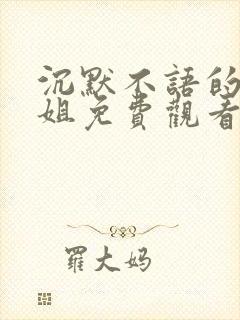 沉默不語的
姐免費觀看
羅大妈